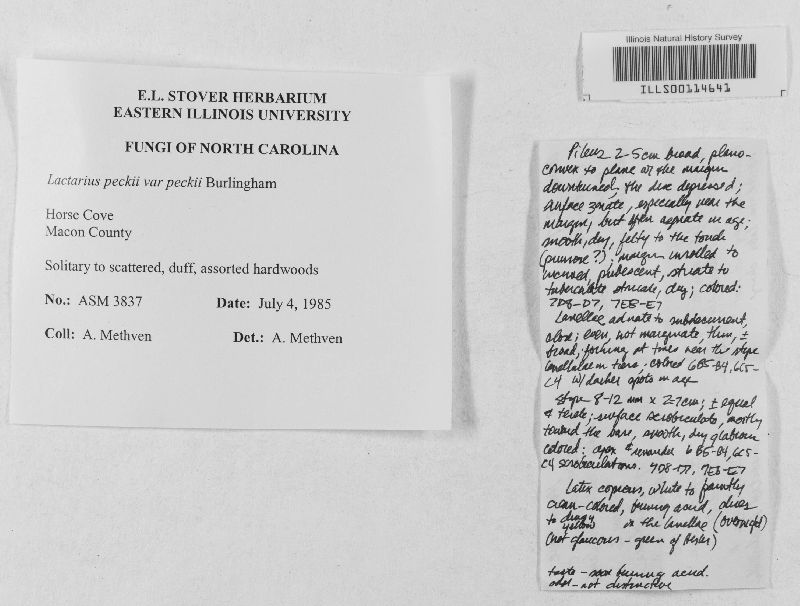 E.L. STOVER HERBARIUM
EASTERN ILLINOIS UNIVERSITY
FUNGI OF NORTH CAROLINA
Lactarius peckii var peckii Burlingham
Horse Cove
Macon County
Solitary to scattered, duff, assorted hardwoods
No.: ASM 3837 Date: July 4, 1985
Coll: A. Methven Det.: A. Methven
Illinois Natural History Survey
ILLS00114641
Pileus 2-5cm broad, plano-
convex to plane w/ the margin
downturned, the disc depressed;
surface zonate, especially near the
margin, but often azonate in age;
smooth, dry, felty to the touch
(pruinose?); margin inrolled to
incurved, pubescent, striate to
tuberculate striate, dry; colored:
7D8-D7, 7E8-E7
Lamellae adnate to subdecurrent,
close; even, not marginate, thin, ±
broad, forking at times near the stipe
lamellulae in tiers, colored 6B5-B4, 6C5-
C4 w/ darker spots in age
Stipe 8-12 mm x 2-7cm; ± equal
& terete; surface scrobiculate, mostly
toward the base, smooth, dry glabrous
colored: apex & remainder 6B5-B4, 6C5-
C4 scrobiculations. 7D8-D7, 7E8-E7
Latex copious, white to faintly
cream-colored, burning acrid, dries
to dingy yellow on the lamellae (overnight)
(not glaucous-green of Hesler)
taste - soon burning acrid.
odor - not distinctive